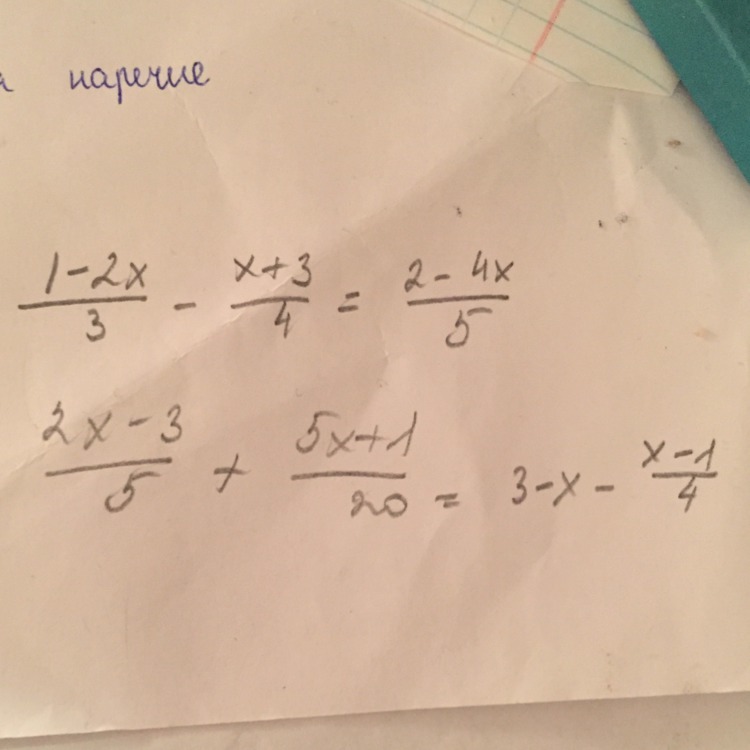 я наречие
\frac{1-2x}{3} - \frac{x+3}{4} = \frac{2-4x}{5}
\frac{2x-3}{5} + \frac{5x+1}{20} = 3-x-\frac{x-1}{4}